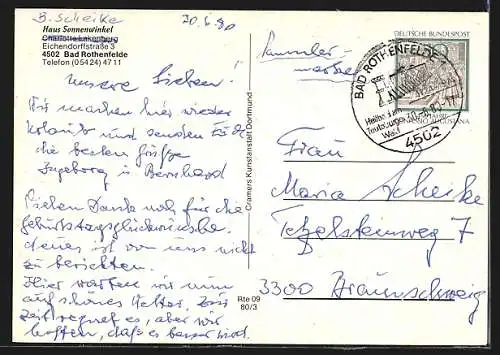 B. Scheike
20.6.80
Haus Sonnenwinkel
Charlotte Lakenberg
Eichendorffstraße 3
4502 Bad Rothenfelde
Telefon (05424) 4711
Unsere Lieben!
Wir machen hier wieder
und senden Euch
die besten Grüße
Ingeborg und Bernhard
Vielen Dank noch für die
Geburtstagsglückwünsche.
Neues ist von uns nicht
zu berichten.
Hier warten wir nun
auf schönes Wetter. Zur
Zeit regnet es, aber wir
hoffen, daß es besser wird.
Cramers Kunstanstalt Dortmund
Rte 09
80/3
Sammler-
marke
DEUTSCHE BUNDESPOST
AUGUSTANA
BAD ROTHENFELDE
Teutoburger
4502
Frau
Maria Scheike
Tetzelsteinweg 7
3300 Braunschweig